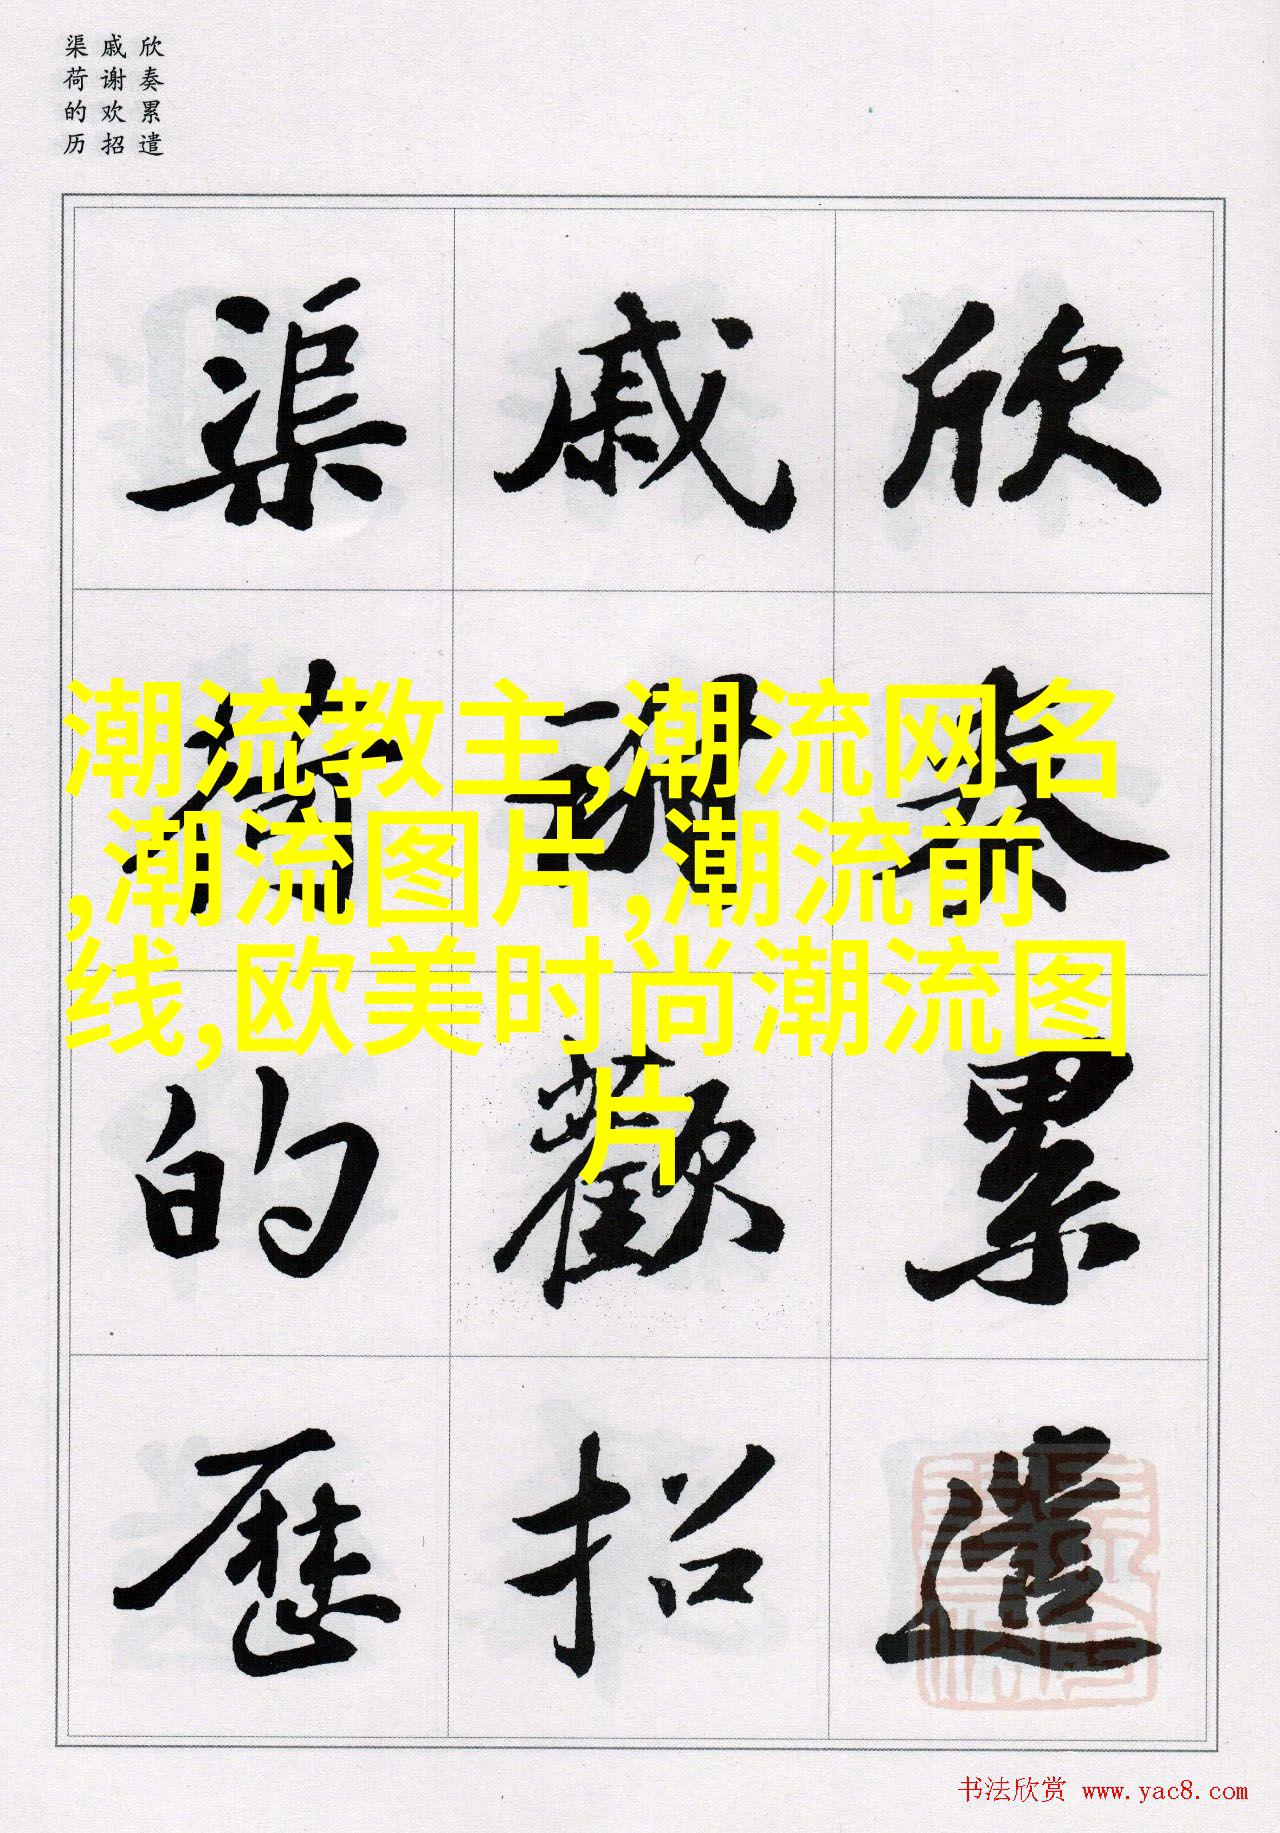 欣奏累遣
戚谢欢招
渠荷的历
欣奏累遣
戚謝歡招
渠荷的歷
潮流教主,潮流网名
,潮流图片,潮流前
线,欧美时尚潮流图
片
书法欣赏 www.yac8.com